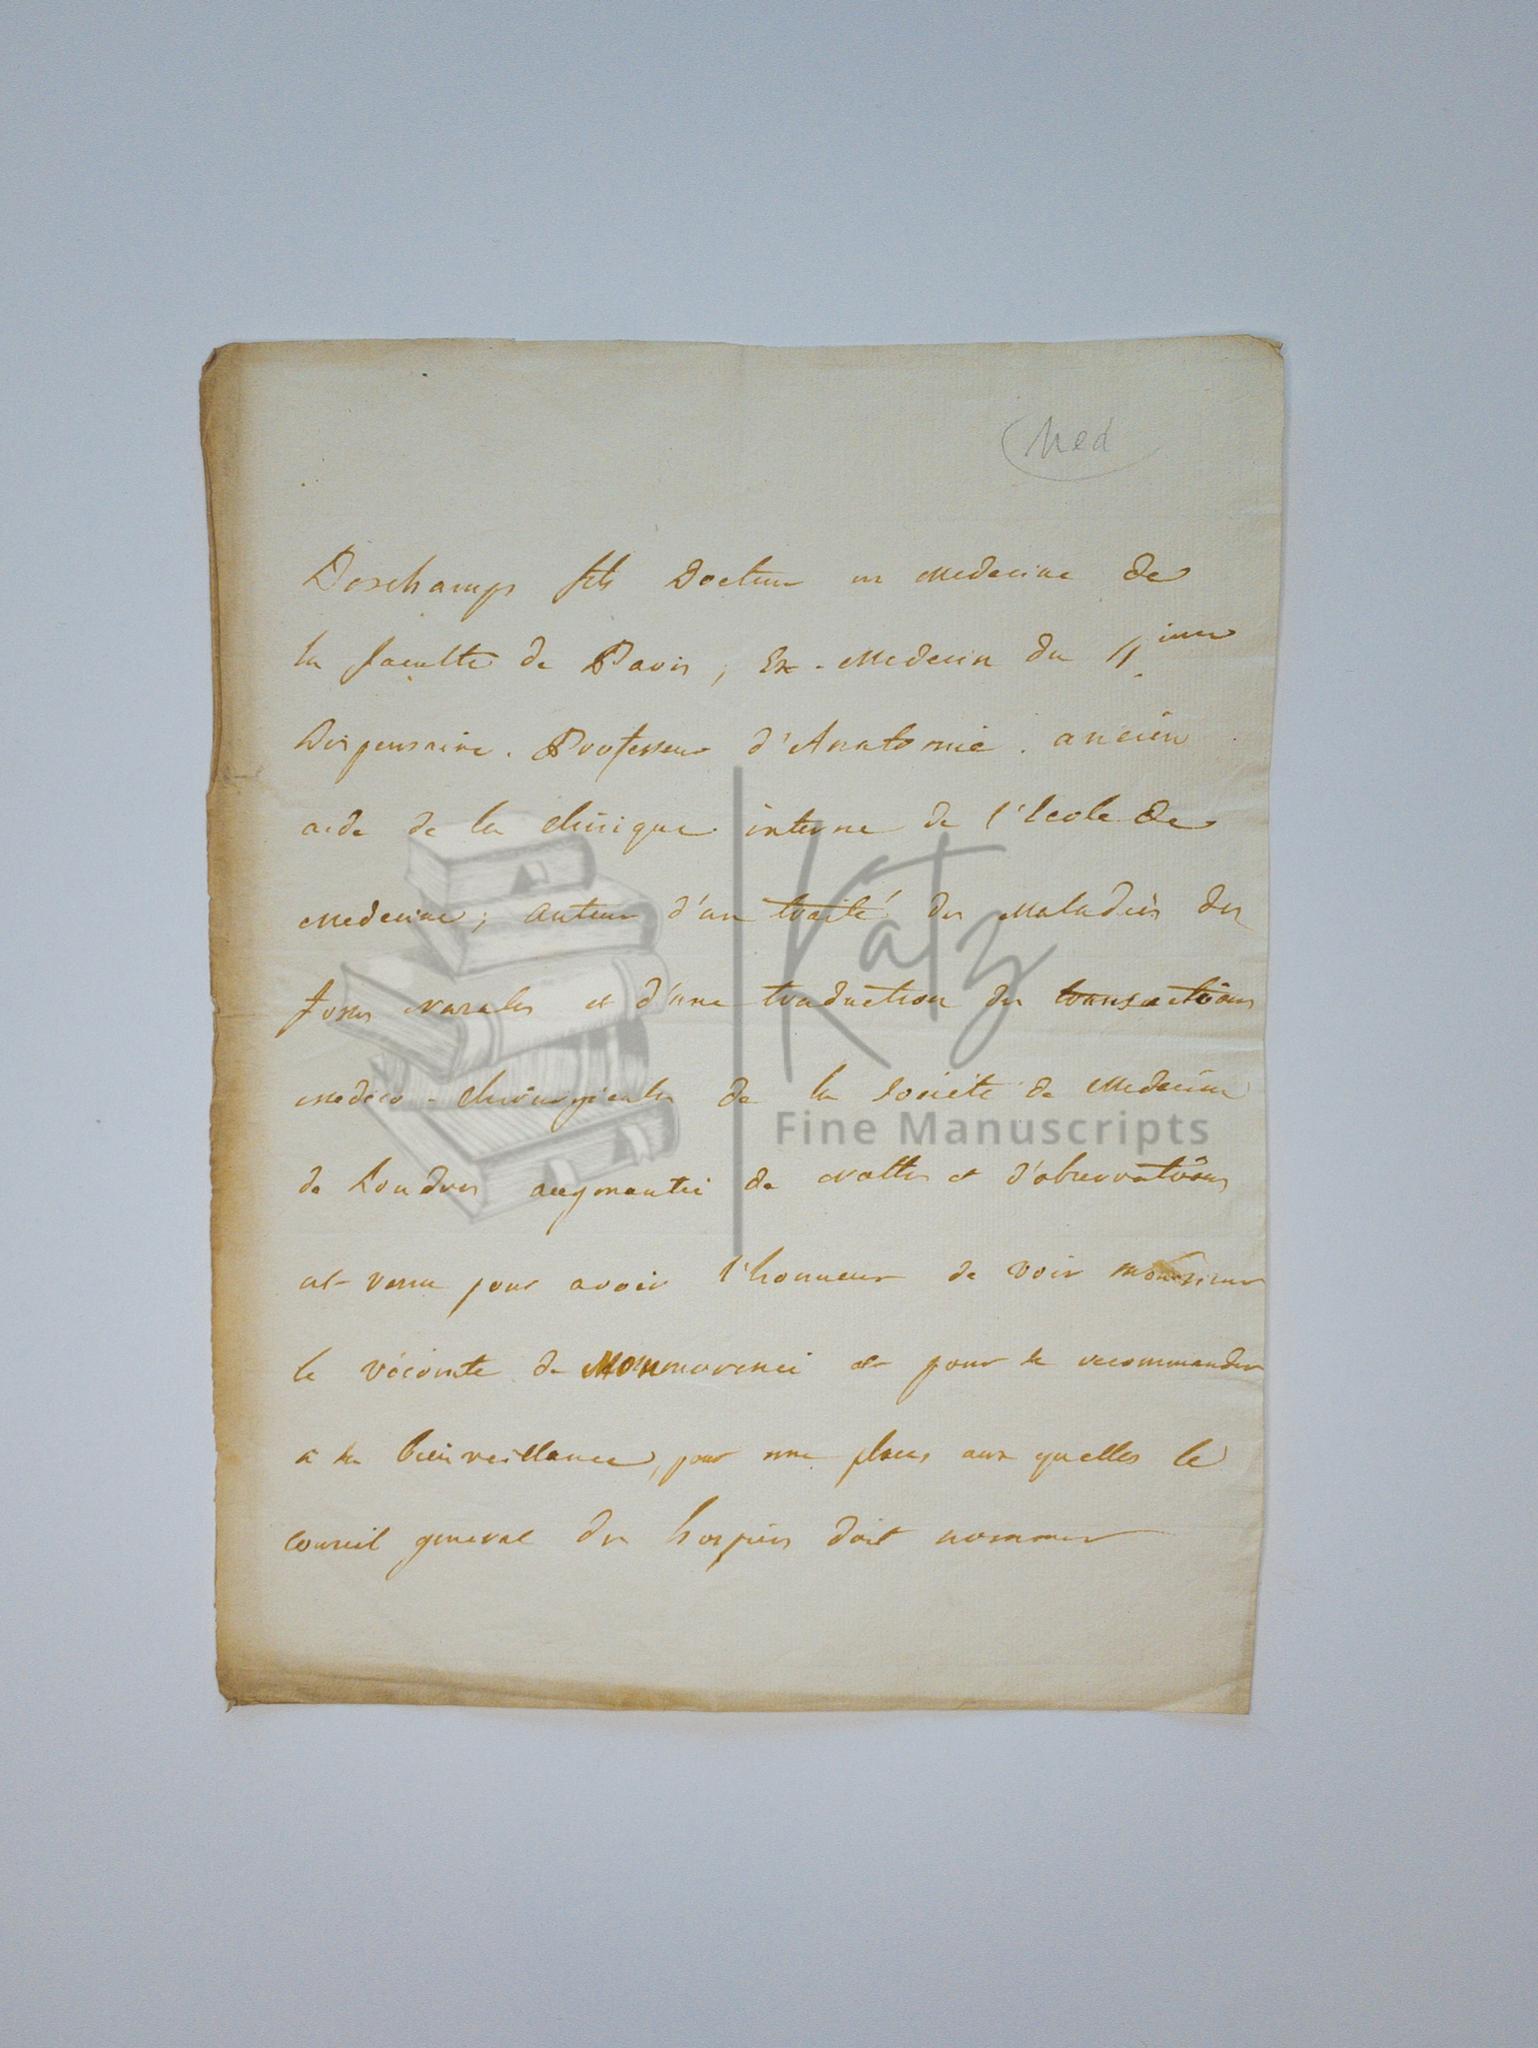 Med
Deschamps fils Docteur en Medecine de
la faculté de Paris, Ex-Medecin du 4.ieme
Dispensaire. Professeur d'Anatomie. ancien
aide de la clinique interne de l'Ecole de
Medecine; Auteur d'un traité des Maladies des
fosses nasales et d'une traduction des transactions
medico-chirurgicales de la Société de Medecine
de Londres augmentée de nottes et d'observations
est venu pour avoir l'honneur de voir monsieur
le Vicomte de Monmorenci et pour se recommander
à sa bienveillance, pour une places aux quelles le
conseil general des hospices doit nommer
Katz
Fine Manuscripts